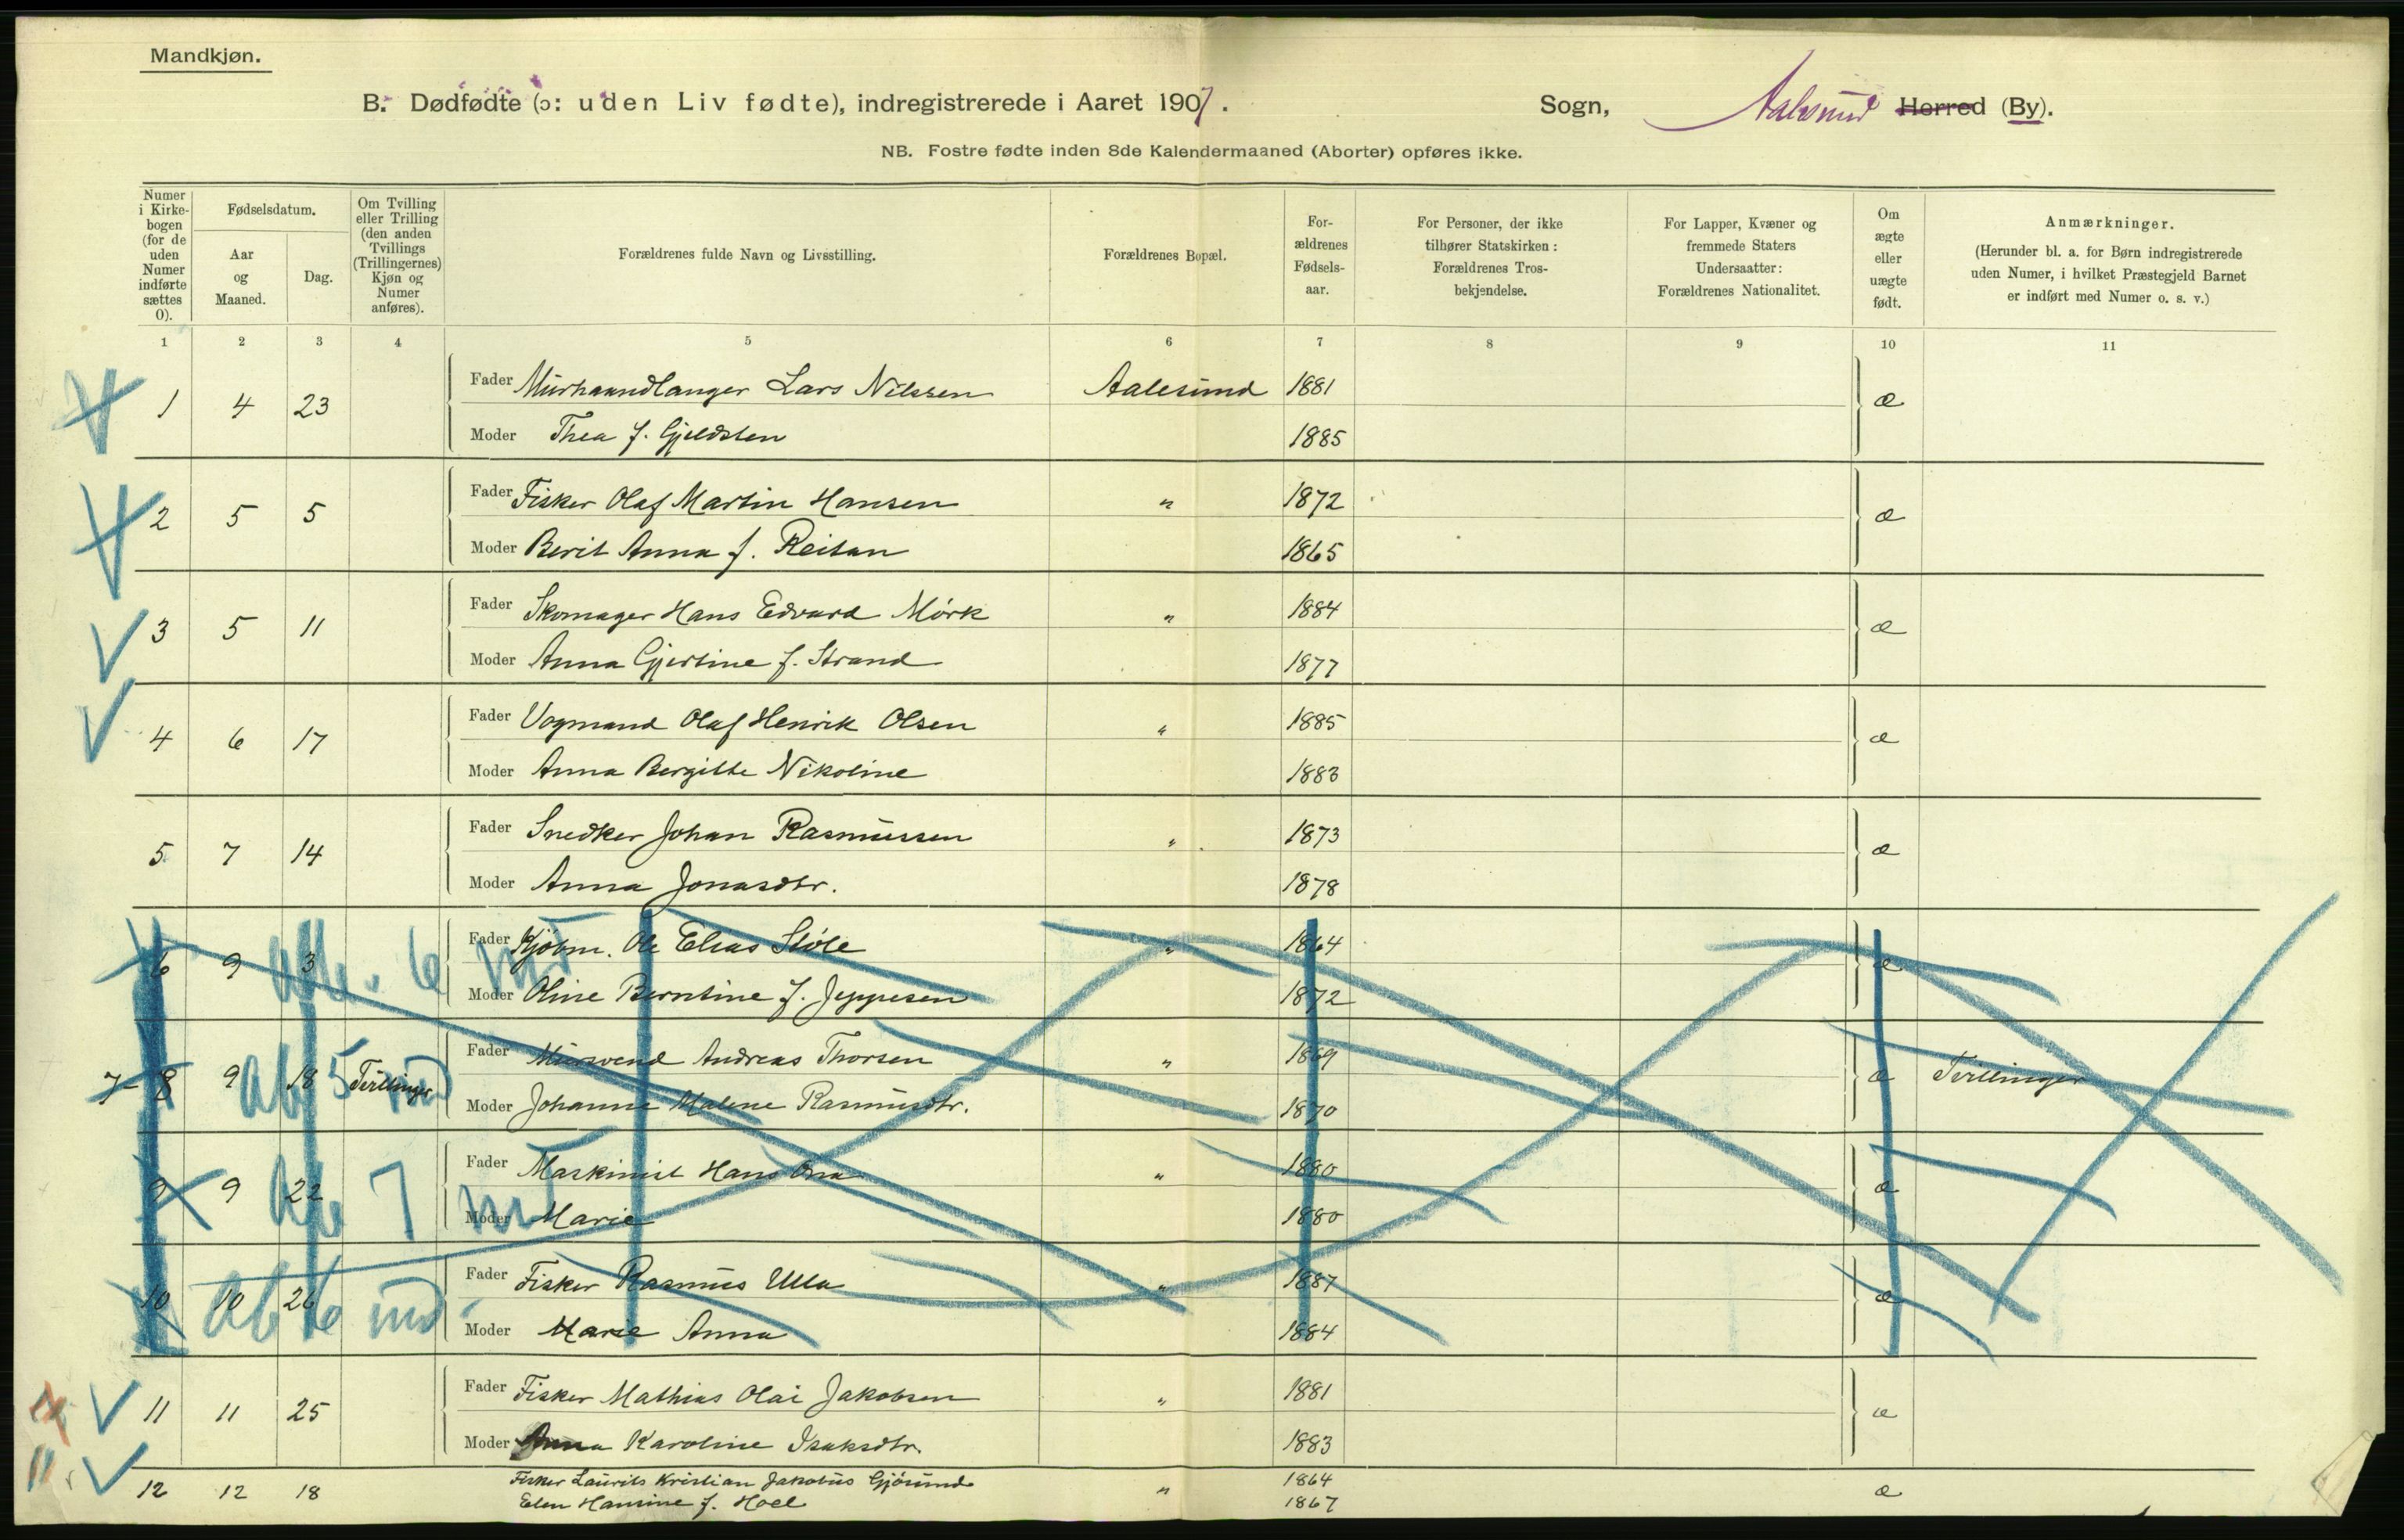 Mandkjøn.
B. Dødfødte (ɔ: uden Liv fødte), indregistrerede i Aaret 1907. Sogn, Aalesund Herred (By).
NB. Fostre fødte inden 8de Kalendermaaned (Aborter) opføres ikke.
Numer i Kirkebogen (for de uden Numer indførte sættes 0).
Fødselsdatum.
Aar og Maaned.
Dag.
Om Tvilling eller Trilling (den anden Tvillings (Trillingernes) Kjøn og Numer anføres).
Forældrenes fulde Navn og Livsstilling.
Forældrenes Bopæl.
Forældrenes Fødselsaar.
For Personer, der ikke tilhører Statskirken: Forældrenes Trosbekjendelse.
For Lapper, Kvæner og fremmede Staters Undersaatter: Forældrenes Nationalitet.
Om ægte eller uægte født.
Anmærkninger.
(Herunder bl. a. for Børn indregistrerede uden Numer, i hvilket Præstegjeld Barnet er indført med Numer o. s. v.)
1 2 3 4 5 6 7 8 9 10 11
1 4 23 Fader Murhaandlanger Lars Nilssen Aalesund 1881 æ
Moder Thea f. Gjeldsten 1885
2 5 5 Fader Fisker Olaf Martin Hansen " 1872 æ
Moder Berit Anna f. Reitan 1865
3 5 11 Fader Skomager Hans Edvard Mørk " 1884 æ
Moder Anna Gjertine f. Strand 1877
4 6 17 Fader Vognmand Olaf Henrik Olsen " 1885 æ
Moder Anna Bergitte Nikoline 1883
5 7 14 Fader Snedker Johan Rasmussen " 1873 æ
Moder Anna Jonasdtr. 1878
6 9 3 Fader Kjøbm. Ole Elias Støle " 1864 æ
Moder Oline Berntine f. Jeppesen 1872
7-8 9 18 Tvillinger Fader Mursvend Andreas Thorsen " 1869 æ Tvillinger
Moder Johanne Malene Rasmusdtr. 1870
9 9 22 Fader Maskinist Hans Ona " 1880 æ
Moder Marie 1880
10 10 26 Fader Fisker Rasmus Ulla " 1887 æ
Moder Marie Anna 1884
11 11 25 Fader Fisker Mathias Olai Jakobsen " 1881 æ
Moder Anna Karoline Isaksdtr. 1883
12 12 18 Fisker Laurits Kristian Jakobus Gjøsund " 1864 æ
Elen Hansine f. Hoel 1867